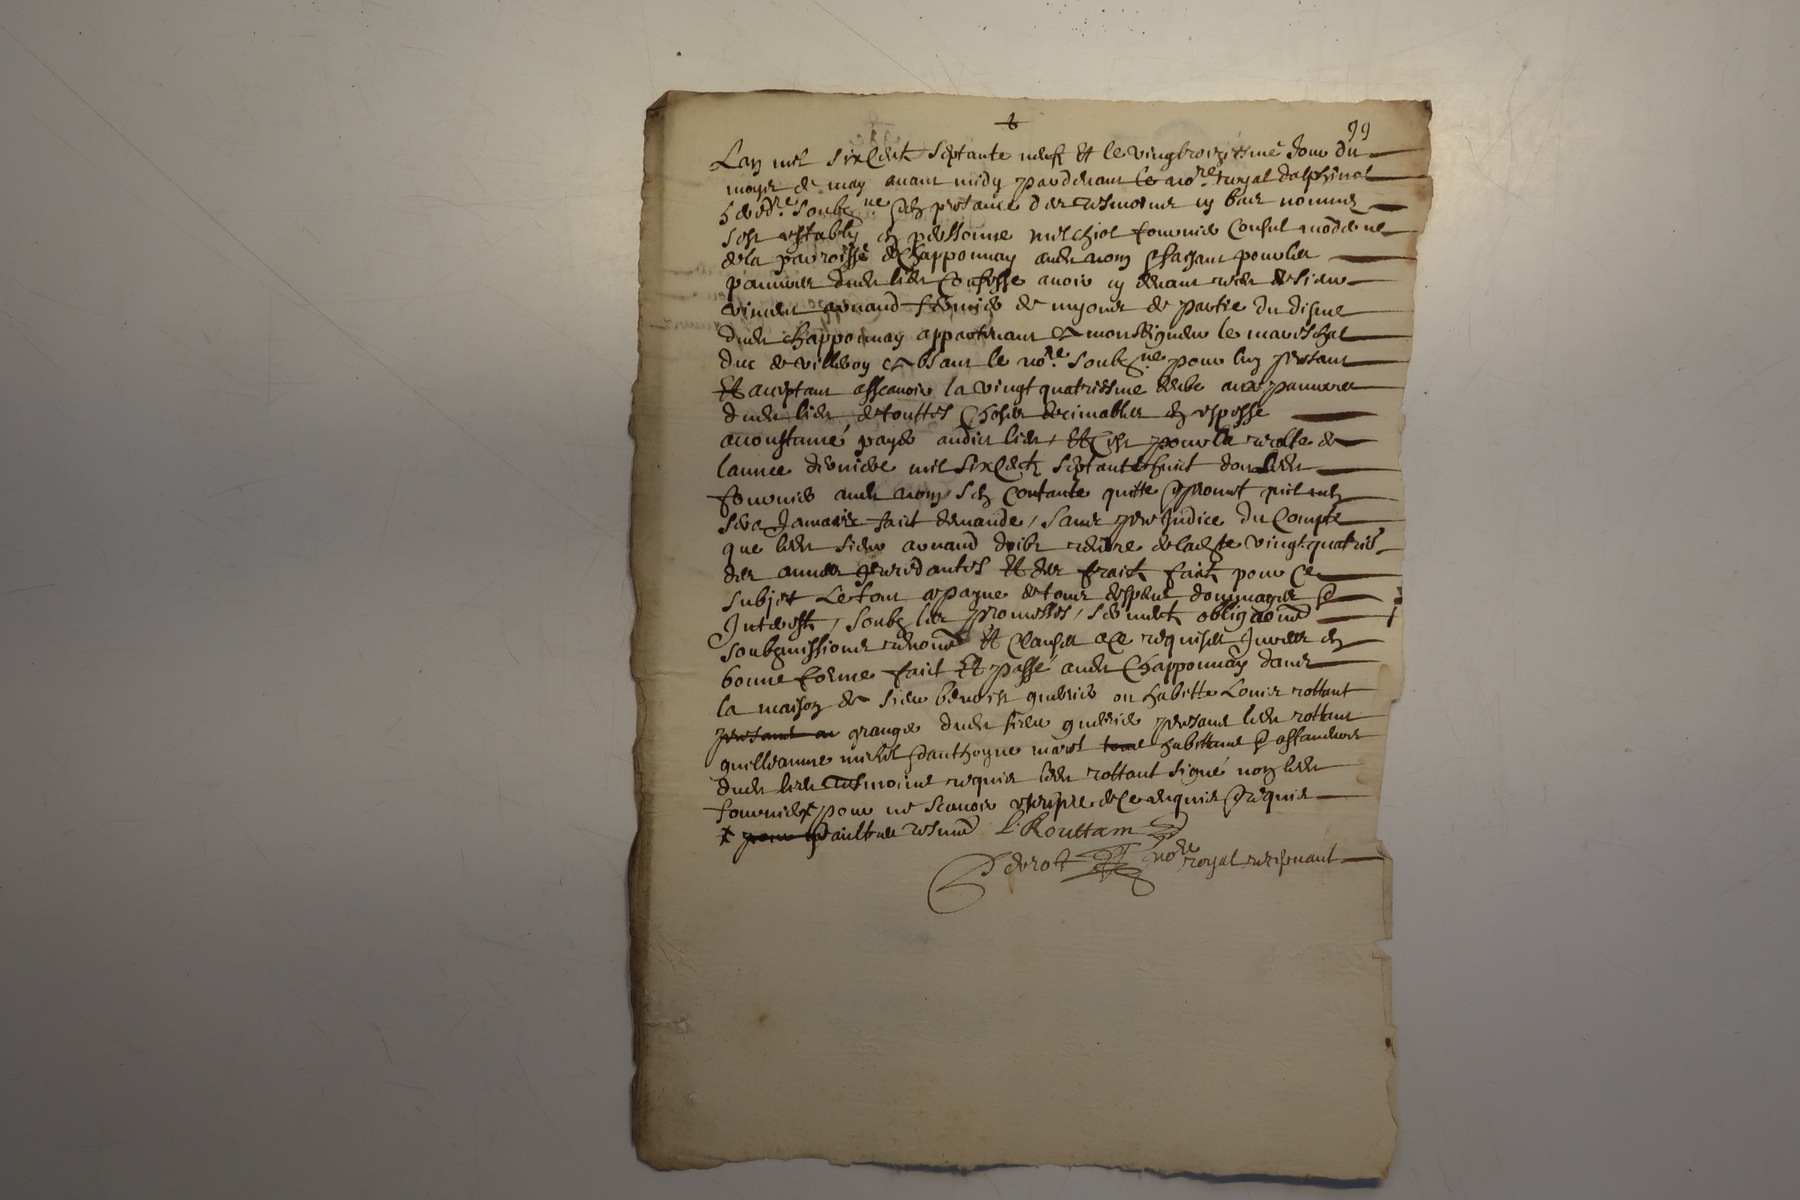 99
Lan mil six cent septante neuf et le vingtroizieme jour du
moys de may avant midy pardevant le no.re royal dalphinal
hered.re soubz.ne et en presance des tesmoins cy bas nommes
sest estably en personne melchiol fournier consul moderne
de la parroisse de Chapponnay audit nom et faizant pour les
pauvres dudit lieu Confesse avoir cy devant receu de sieur
vincent arnaud fermier de moytié de partie du disme
dudit Chapponnay appartenant a monseigneur le mareschal
duc de villeroy absant le no.re soubz.ne pour luy presant
et aceptant assavoir la vingt quatriesme deube aux pauvres
dudit lieu de touttes choses decimables en espesse
acoustumé payer audict lieu, et cest pour la recolte de
lannee derniere mil six cent septante huict dont ledit
fournier audit nom sen contante quitte et promet quil nen
sera jamais faict demande, sans prejudice du compte
que ledit sieur arnaud doibt rendre de ladite vingt quatrie
des annees precedantes et des fraict faict pour ce
subjet Le tout a payne de tous despens dommages et
Interest, soubz les promesses, serment obliga.on
soubzmissions renon.on et clauses a ce requises Jurees en
bonne forme faict et passé audit Chapponnay dans
la maison de sieur benoist guerrier ou habitte Louis rottant
granger dudit sieur guerrier presant ledit rottant
guilleaume michel et anthoyne morel habittans et
dudit lieu tesmoins requis ledit rottant signé non ledit
fournier pour ne scavoir escripre de ce enquis et requis
et aultre tesmoin L. Routtam
Perrot no.re royal recepvant